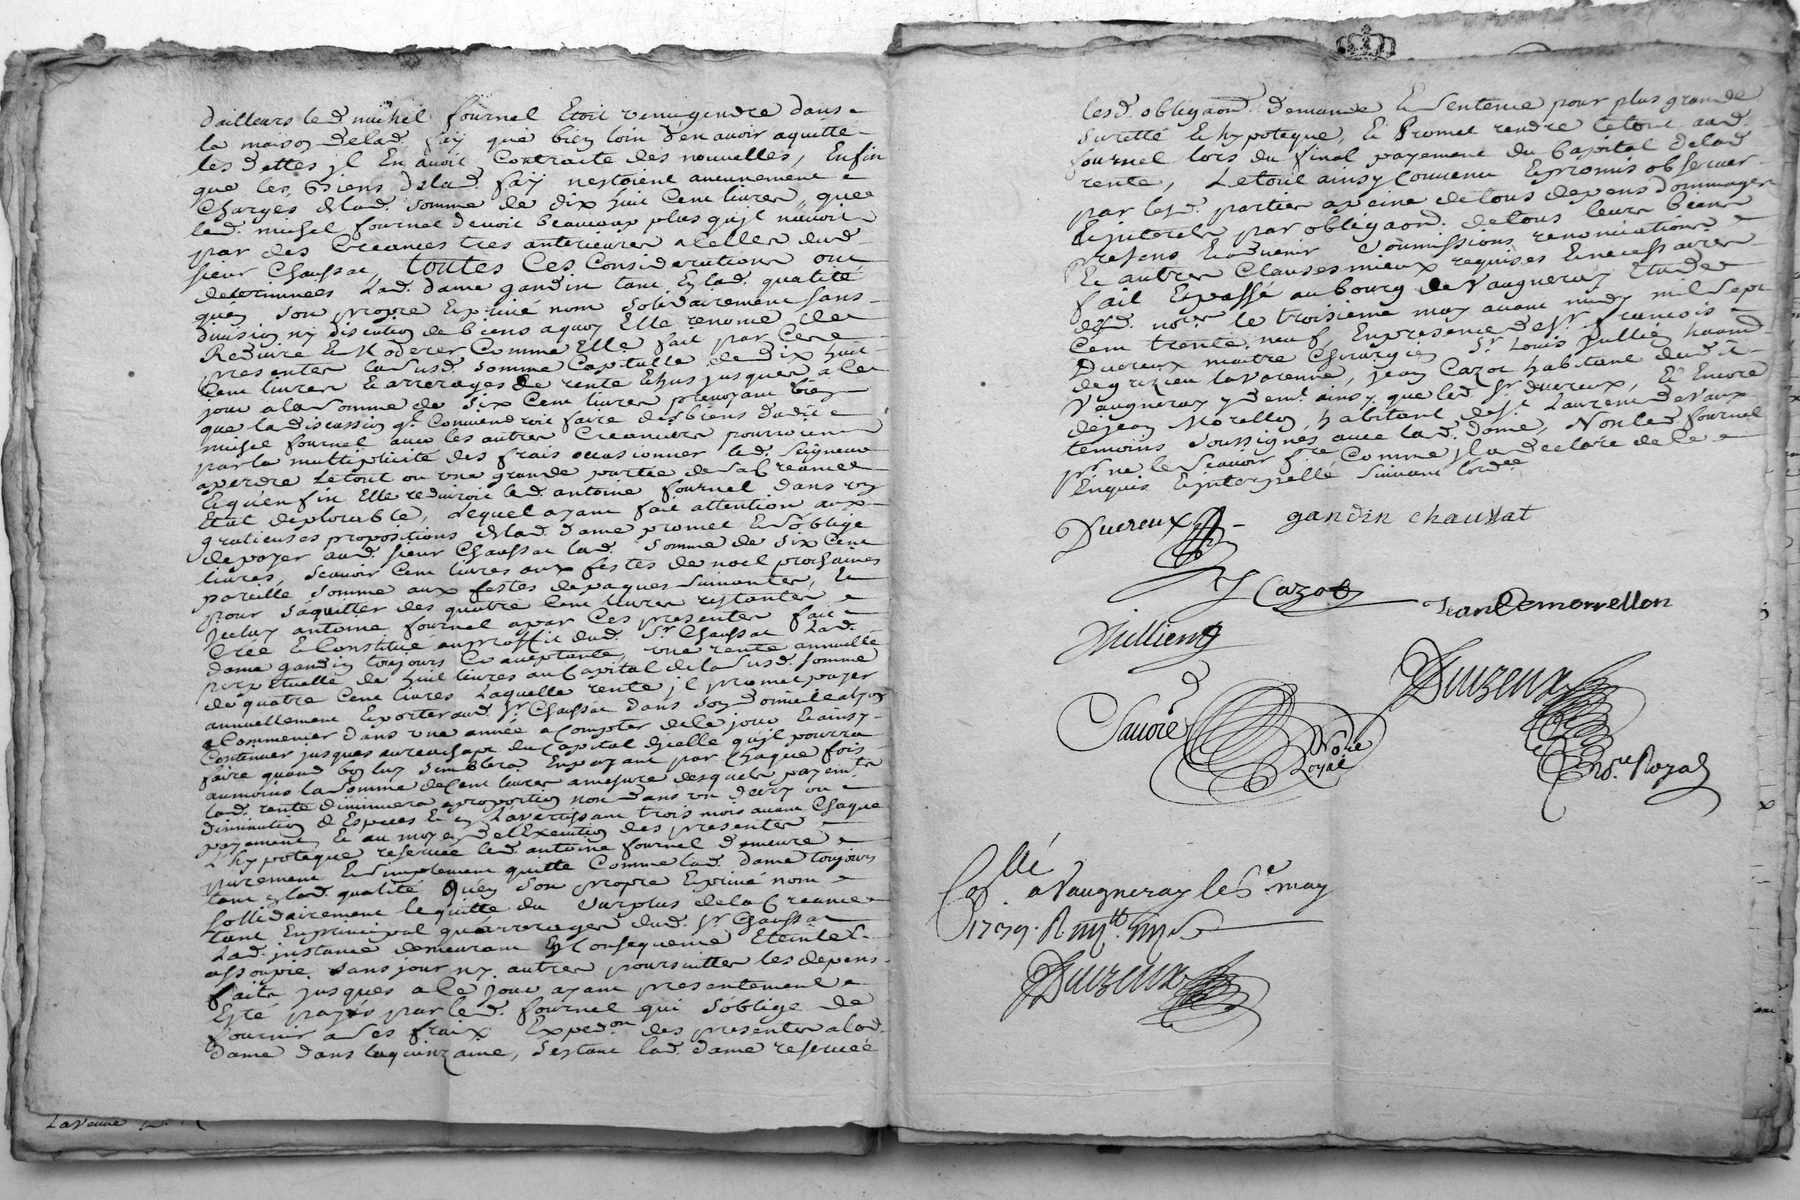 dailleurs led. michel fournel Etoit venu gendre dans
la maison delad. faÿ que bien loin den avoir aquitte
les dettes jl En avoit Contracté des nouvelles, Enfin
que les Biens delad. faÿ nestoient aucunement
Chargés delad. somme de dix huit Cent livres, que
led. michel fournel devoit beaucoup plus qu'jl navoit
par des Creances tres anterieures a Celles dud.
sieur Chaussat, toutes Ces Considerations ont
determinées Lad. dame gandin tant En lad. qualité
qu'en son propre Exprimé nom solidairement sans
division ny discution de biens aquoy Elle renonce de
Reduire & Moderer Comme Elle fait par Ces
presentes lasusd. somme Capitalle de dix huit
Cent livres & arrerages de rente Echus jusques a Ce
jour a la somme de six Cent livres prevoyant bien
que la discussion qt. Conviendroit faire des biens dudit
michel fournel avec les autres Creanciers pourroient
par la multiplicité des frais occasionner led. Seigneur
a perdre Letout ou une grande partie de sa Creance
Et qu'enfin Elle reduiroit led. antoine fournel dans un
Etat deplorable, Lequel ayant fait attention aux
gratieuses propositions delad. dame promet & s'oblige
de payer aud. sieur Chaussat lad. somme de six Cent
livres, scavoir Cent livres aux festes de noel prochaines
pareille somme aux festes de paques suivantes, &
pour s'aquitter des quatre Cent livres restantes
jceluy antoine fournel a par Ces presentes fait
Crée & Constitué au proffit dud. Sr. Chaussat Lad.
dame gandin toujours Ce acceptante, une rente annuelle
perpetuelle de huit livres au Capital de la susd. somme
de quatre Cent livres Laquelle rente jl promet payer
annuellement & porter aud. Sr Chaussat dans son domicile a lyon
a Commencer dans une année a Compter de Ce jour & ainsy
Continuer jusques au reachapt du Capital d'jcelle qu'jl pourra
faire quand bon luy semblera En payant par Chaque fois
au moins la somme de Cent livres a mesure desquels payemts.
lad. rente diminuera a proportion non dans un decry ou
diminution d'Especes & en L'avertissant trois mois avant Chaque
payement, & au moyen de l'Execution des presentes
L'hypoteque reservée led. antoine fournel demeure
purement & simplement quitte Comme lad. dame toujours
tant En lad. qualité qu'en son propre Exprimé nom
sollidairement le quitte du surplus de la Creance
tant En principal qu'arrerages dud. Sr Chaussat
Lad. jnstance demeurant En Consequence Eteinte &
assoupie sans jour ny autres poursuittes les depens
faits jusques a Ce jour ayant presentement
Eté payés par led. fournel qui s'oblige de
fournir a ses fraix Expedon. des presentes a lad.
dame dans la quinzaine, s'estant lad. dame reservée
Lavenue
lesd. obligaons. demande & sentence pour plus grande
suretté & hypoteque, & Promet rendre Letout aud.
fournel lors du final payement du Capital delad.
rente, Letout ainsy Convenu & promis observer
par lesd. parties a paine de tous depens dommages
& jnterets par obligaon. de tous leurs biens
presens & advenir soumissions renonciations
& autres Clauses mieux requises & necessaires
fait & passé au bourg de vaugneray Etude
desd. nores. le troisieme may avant midy mil sept
Cent trente neuf, En presence de Sr. François
Ducreux maitre Chirurgien Sr Louis Jullien
de grezieu lavarenne, jean Cazot habitant dudit
Vaugneray y demt. ainsy que led. Sr. ducreux, & Encore
de jean Morellon, habitant de St. Laurent de vaux
temoins soussignés avec lad. dame, Non led. fournel
pr. ne le scavoir fre. Comme jl a declaré de Ce
Enquis & jnterpellé suivant l'ordce.
Ducreux
gandin chaussat
J Cazot
Jean Demorrellon
Jullien
Sauore
Nore
Royal
Duizeux
nore. Royal
Collé
a Vaugneray le 6e. may
1739.
Duizeux